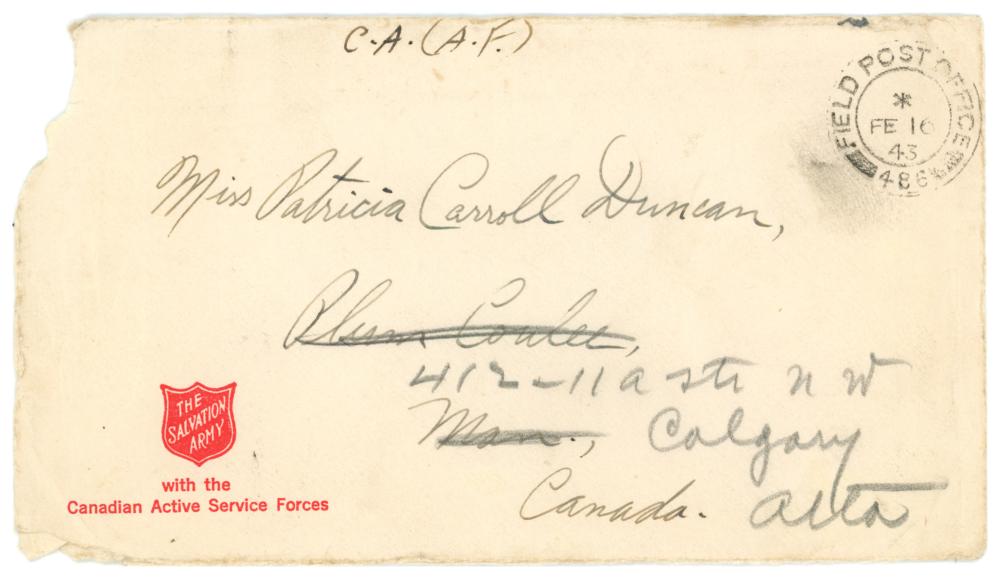 C.A. (A.F.)
FIELD POST OFFICE
*
FE 16
43
486
Miss Patricia Carroll Duncan,
Plum Coulee,
412-11 a str N W
Man., Calgary
Canada. Alta
THE
SALVATION
ARMY
with the
Canadian Active Service Forces